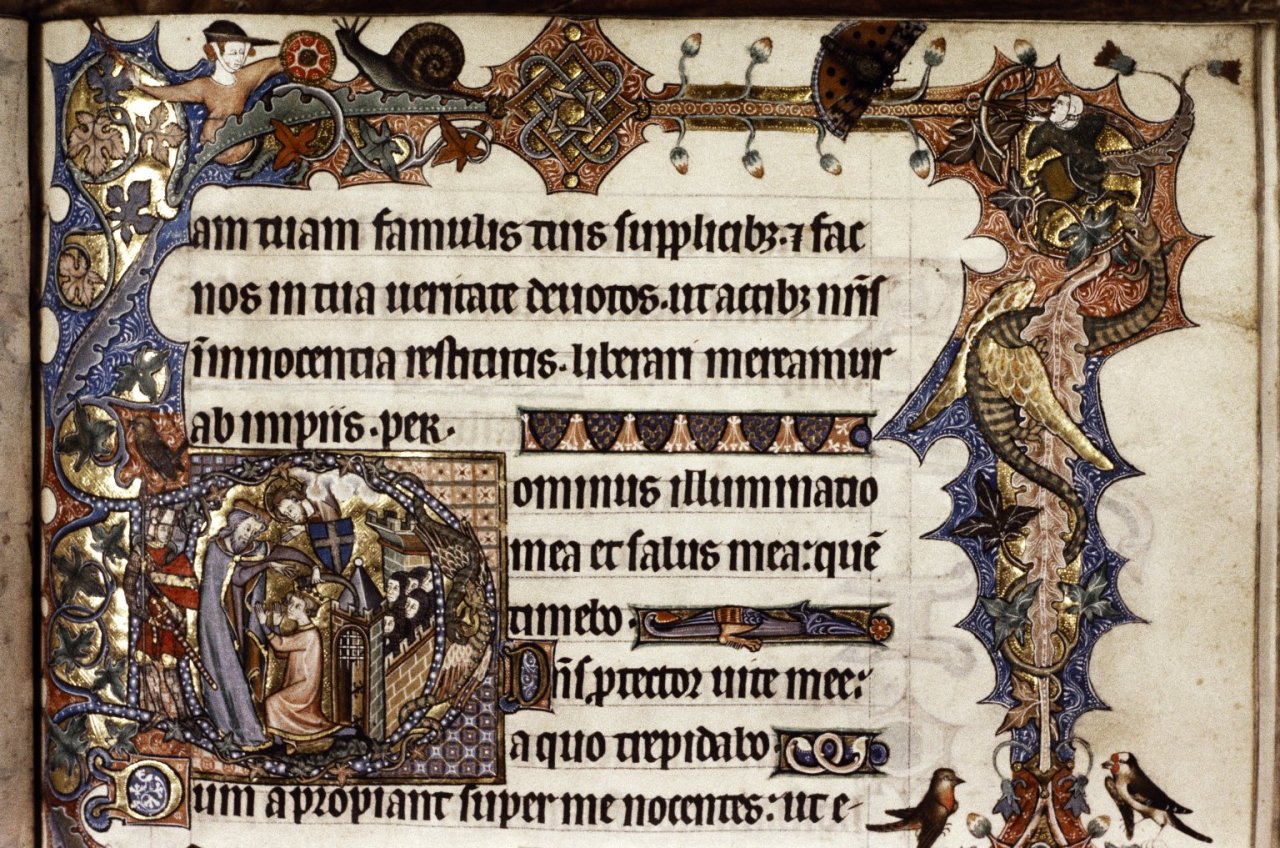 am tuam famulis tuis supplicibꝫ. ⁊ fac
nos in tua ueritate deuotos. ut actibꝫ nr̄is
īnnocentia restitutis. liberari mereamur
ab impiis. per.
Dominus illuminatio
mea et salus mea: quē
timebo.
Dn̄s ꝓtector uite mee:
a quo trepidabo
Dum apropiant super me nocentes: ut e-